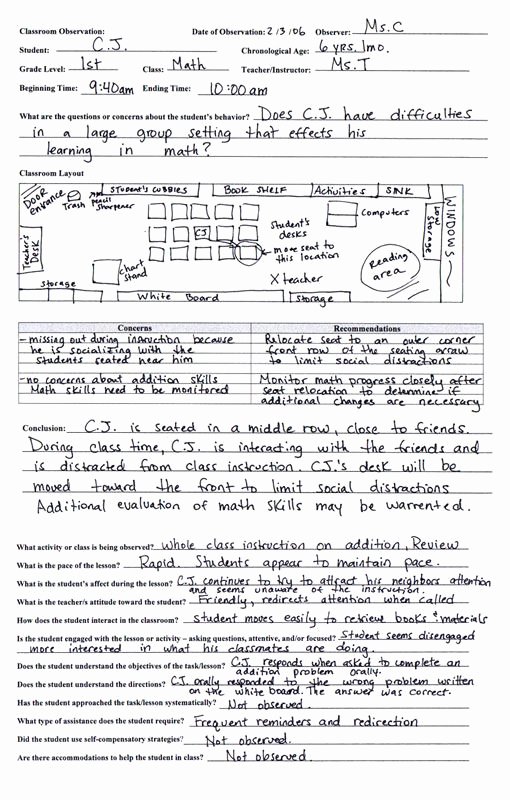 Classroom Observation: Date of Observation: 2/3/06 Observer: Ms.C
Student: C.J. Chronological Age: 6 yrs. 1mo.
Grade Level: 1st Class: Math Teacher/Instructor: Ms.T
Beginning Time: 9:40am Ending Time: 10:00am
What are the questions or concerns about the student's behavior? Does C.J. have difficulties
in a large group setting that effects his
learning in math?
Classroom Layout
DOOR entrance
Trash
pencil sharpener
STUDENT'S CUBBIES
BOOK SHELF
Activities
SINK
WINDOWS
Low Storage
Computers
Teacher's Desk
CJ
Student's desks
move seat to this location
Chart stand
X teacher
Reading area
Storage
White Board
Storage
Concerns Recommendations
-missing out during insruction because Relocate seat to an outer corner
he is socializing with the front row of the seating array
students seated near him to limit social distractions
-no concerns about addition skills Monitor math progress closely after
Math skills need to be monitored seat relocation to determine if
additional changes are necessary
Conclusion: C.J. is seated in a middle row, close to friends.
During class time, C.J. is interacting with the friends and
is distracted from class instruction. CJ.'s desk will be
moved toward the front to limit social distractions
Additional evaluation of math skills may be warrented.
What activity or class is being observed? Whole class instruction on addition, Review
What is the pace of the lesson? Rapid. Students appear to maintain pace.
What is the student's affect during the lesson? C.J. continues to try to attract his neighbors attention
and seems unaware of the instruction.
What is the teacher's attitude toward the student? Friendly, redirects attention when called
How does the student interact in the classroom? Student moves easily to retrieve books & materials
Is the student engaged with the lesson or activity – asking questions, attentive, and/or focused? Student seems disengaged
more interested in what his classmates are doing.
Does the student understand the objectives of the task/lesson? C.J. responds when asked to complete an
addition problem orally.
Does the student understand the directions? C.J. orally responded to the wrong problem written
on the white board. The answer was correct.
Has the student approached the task/lesson systematically? Not observed.
What type of assistance does the student require? Frequent reminders and redirection
Did the student use self-compensatory strategies? Not observed.
Are there accommodations to help the student in class? Not observed.